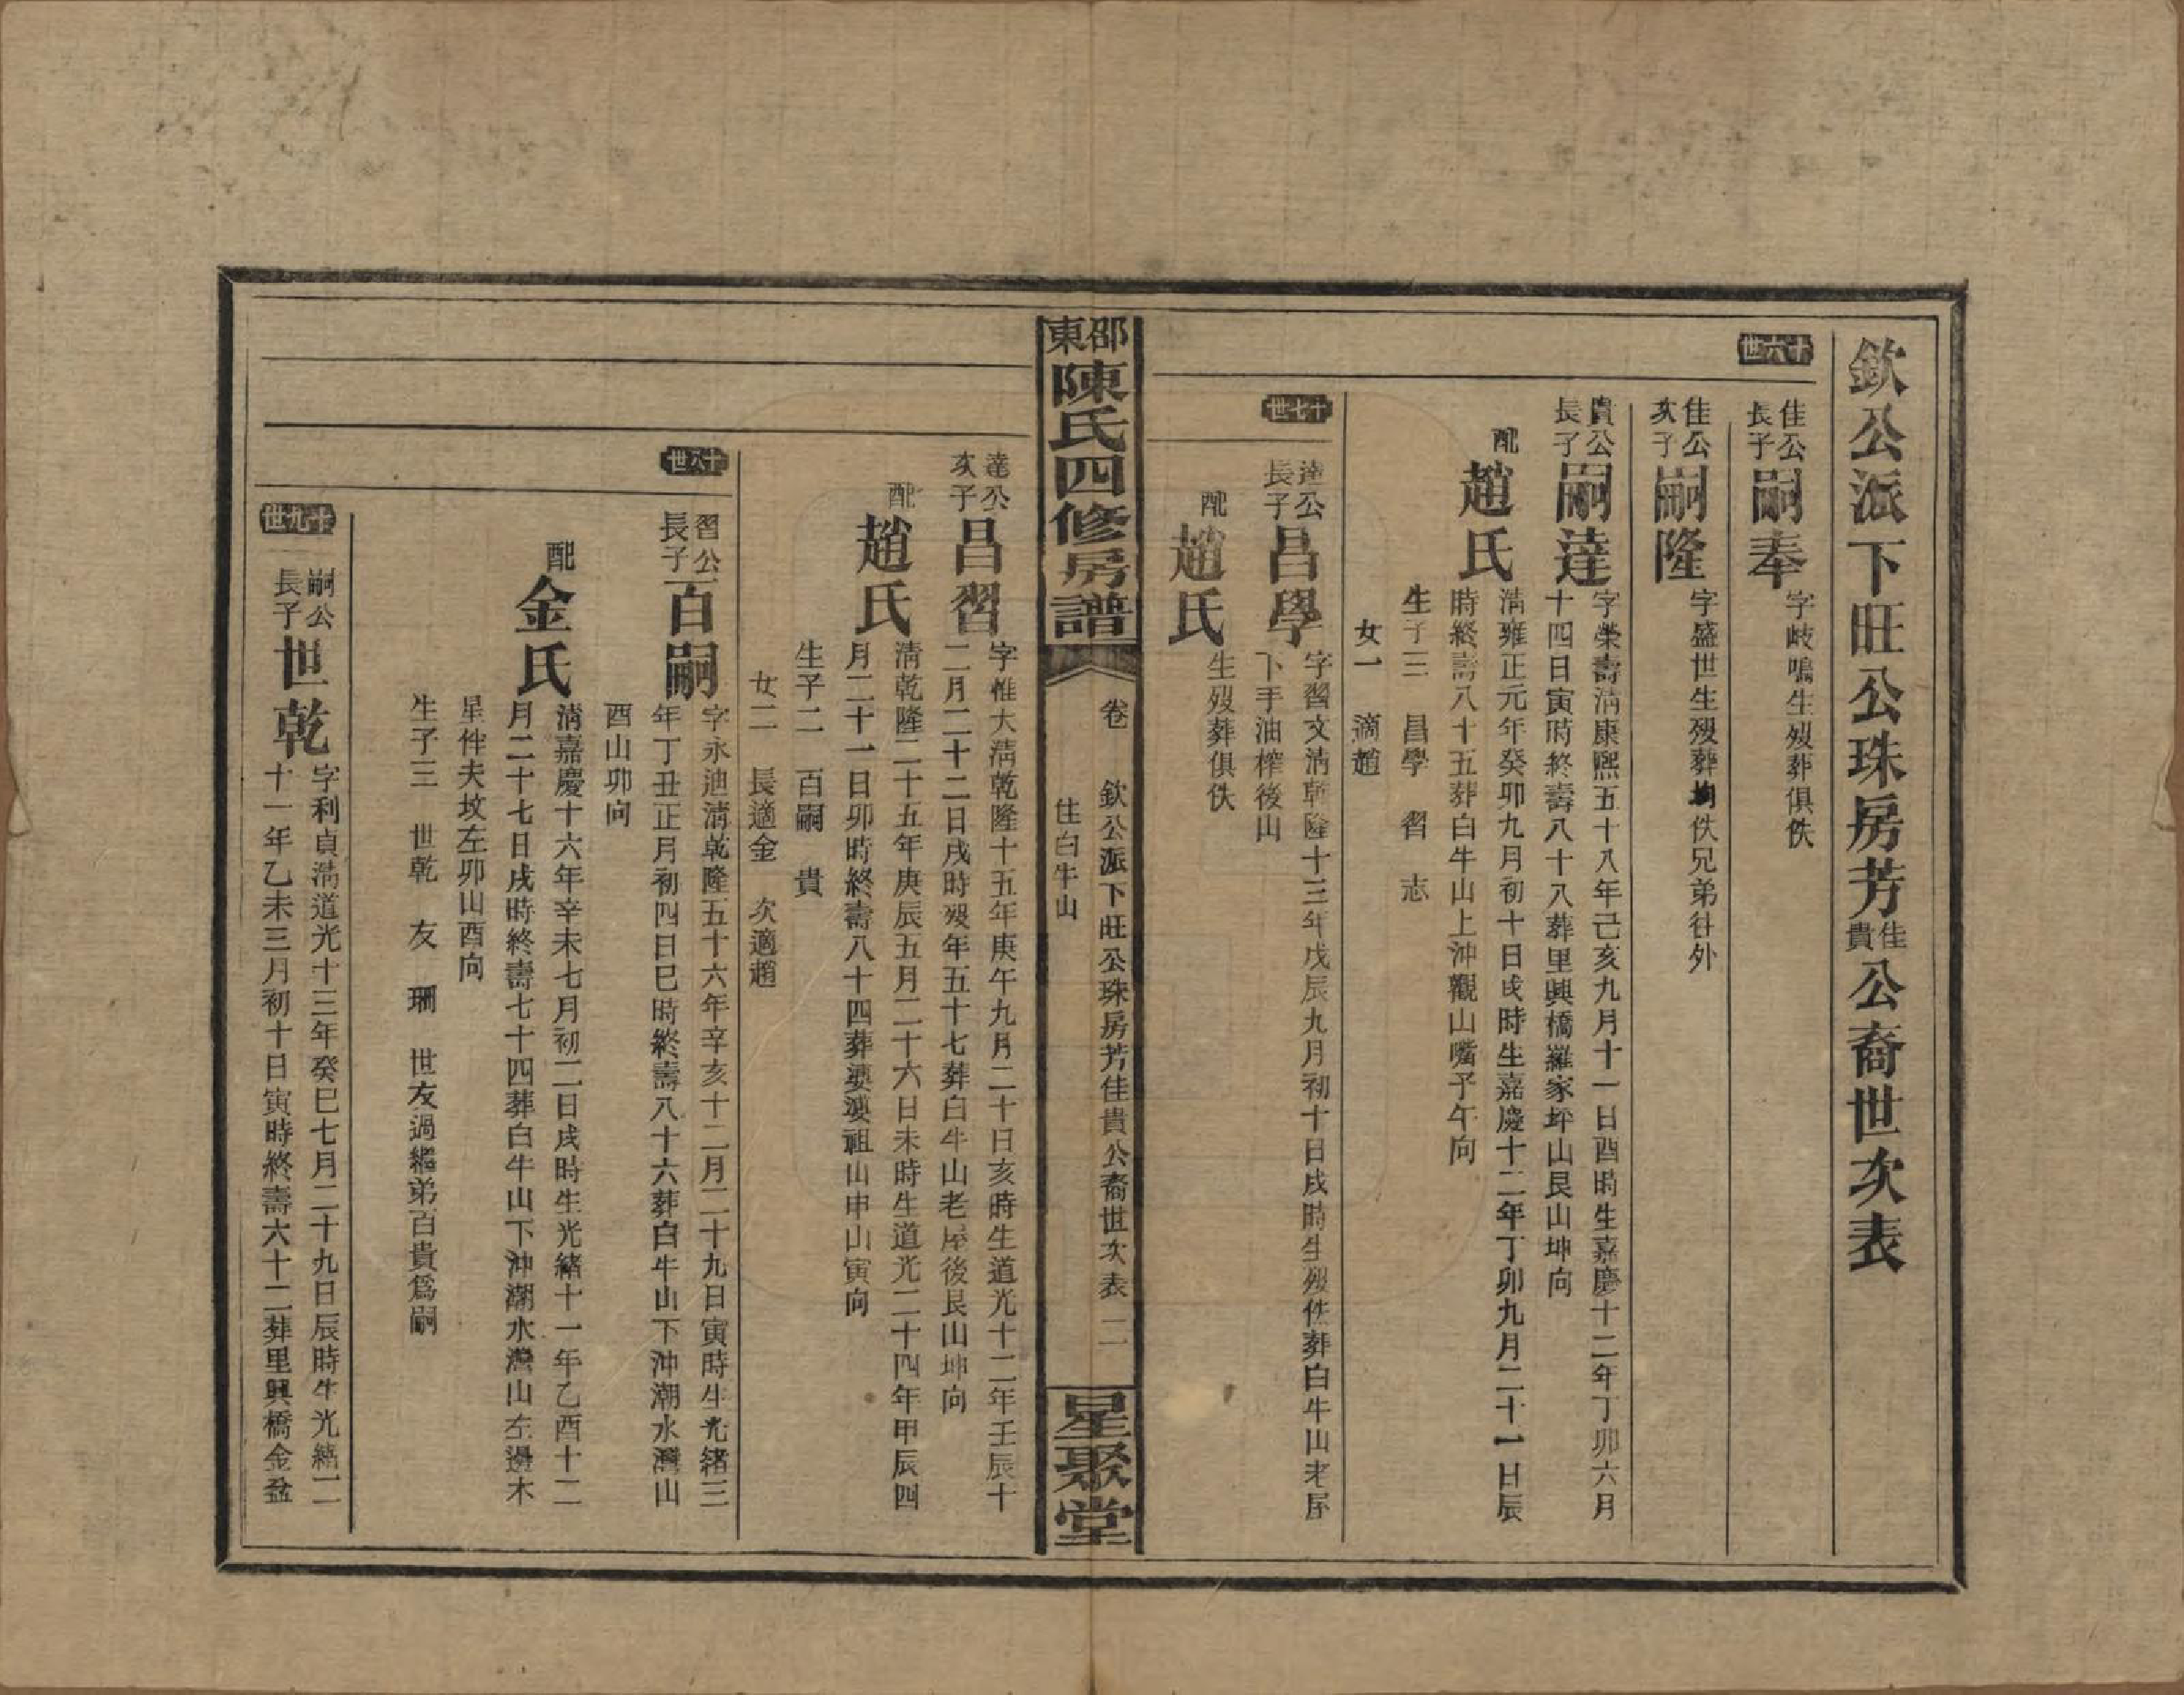 欽公派下旺公珠房芳佳貴公裔世次表
十六世
佳公長子嗣奉
字岐鳴生歿葬俱佚
佳公次子嗣隆
字盛世生歿葬均佚兄弟往外
貴公長子嗣達
字榮壽淸康熙五十八年己亥九月十一日酉時生嘉慶十二年丁卯六月
十四日寅時終壽八十八葬里興橋羅家坪山艮山坤向
配趙氏
淸雍正元年癸卯九月初十日戌時生嘉慶十二年丁卯九月二十一日辰
時終壽八十五葬白牛山上沖觀山嘴子午向
生子三 昌學 習 志
女一 適趙
十七世
達公長子昌學
字習文淸乾隆十三年戊辰九月初十日戌時生歿佚葬白牛山老屋
下手油榨後山
配趙氏
生歿葬俱佚
邵東陳氏四修房譜
卷 欽公派下旺公珠房芳佳貴公裔世次表 二
住白牛山
星聚堂
達公次子昌習
字惟大淸乾隆十五年庚午九月二十日亥時生道光十二年壬辰十
二月二十二日戌時歿年五十七葬白牛山老屋後艮山坤向
配趙氏
淸乾隆二十五年庚辰五月二十六日未時生道光二十四年甲辰四
月二十一日卯時終壽八十四葬婆婆祖山申山寅向
生子二 百嗣 貴
女二 長適金 次適趙
十八世
習公長子百嗣
字永迪淸乾隆五十六年辛亥十二月二十九日寅時生光緒三
年丁丑正月初四日巳時終壽八十六葬白牛山下沖潮水灣山
酉山卯向
配金氏
淸嘉慶十六年辛未七月初二日戌時生光緒十一年乙酉十二
月二十七日戌時終壽七十四葬白牛山下沖潮水灣山左邊木
星伴夫坟左卯山酉向
生子三 世乾 友 珊 世友過繼弟百貴爲嗣
十九世
嗣公長子世乾
字利貞淸道光十三年癸巳七月二十九日辰時生光緒二
十一年乙未三月初十日寅時終壽六十二葬里興橋金盆